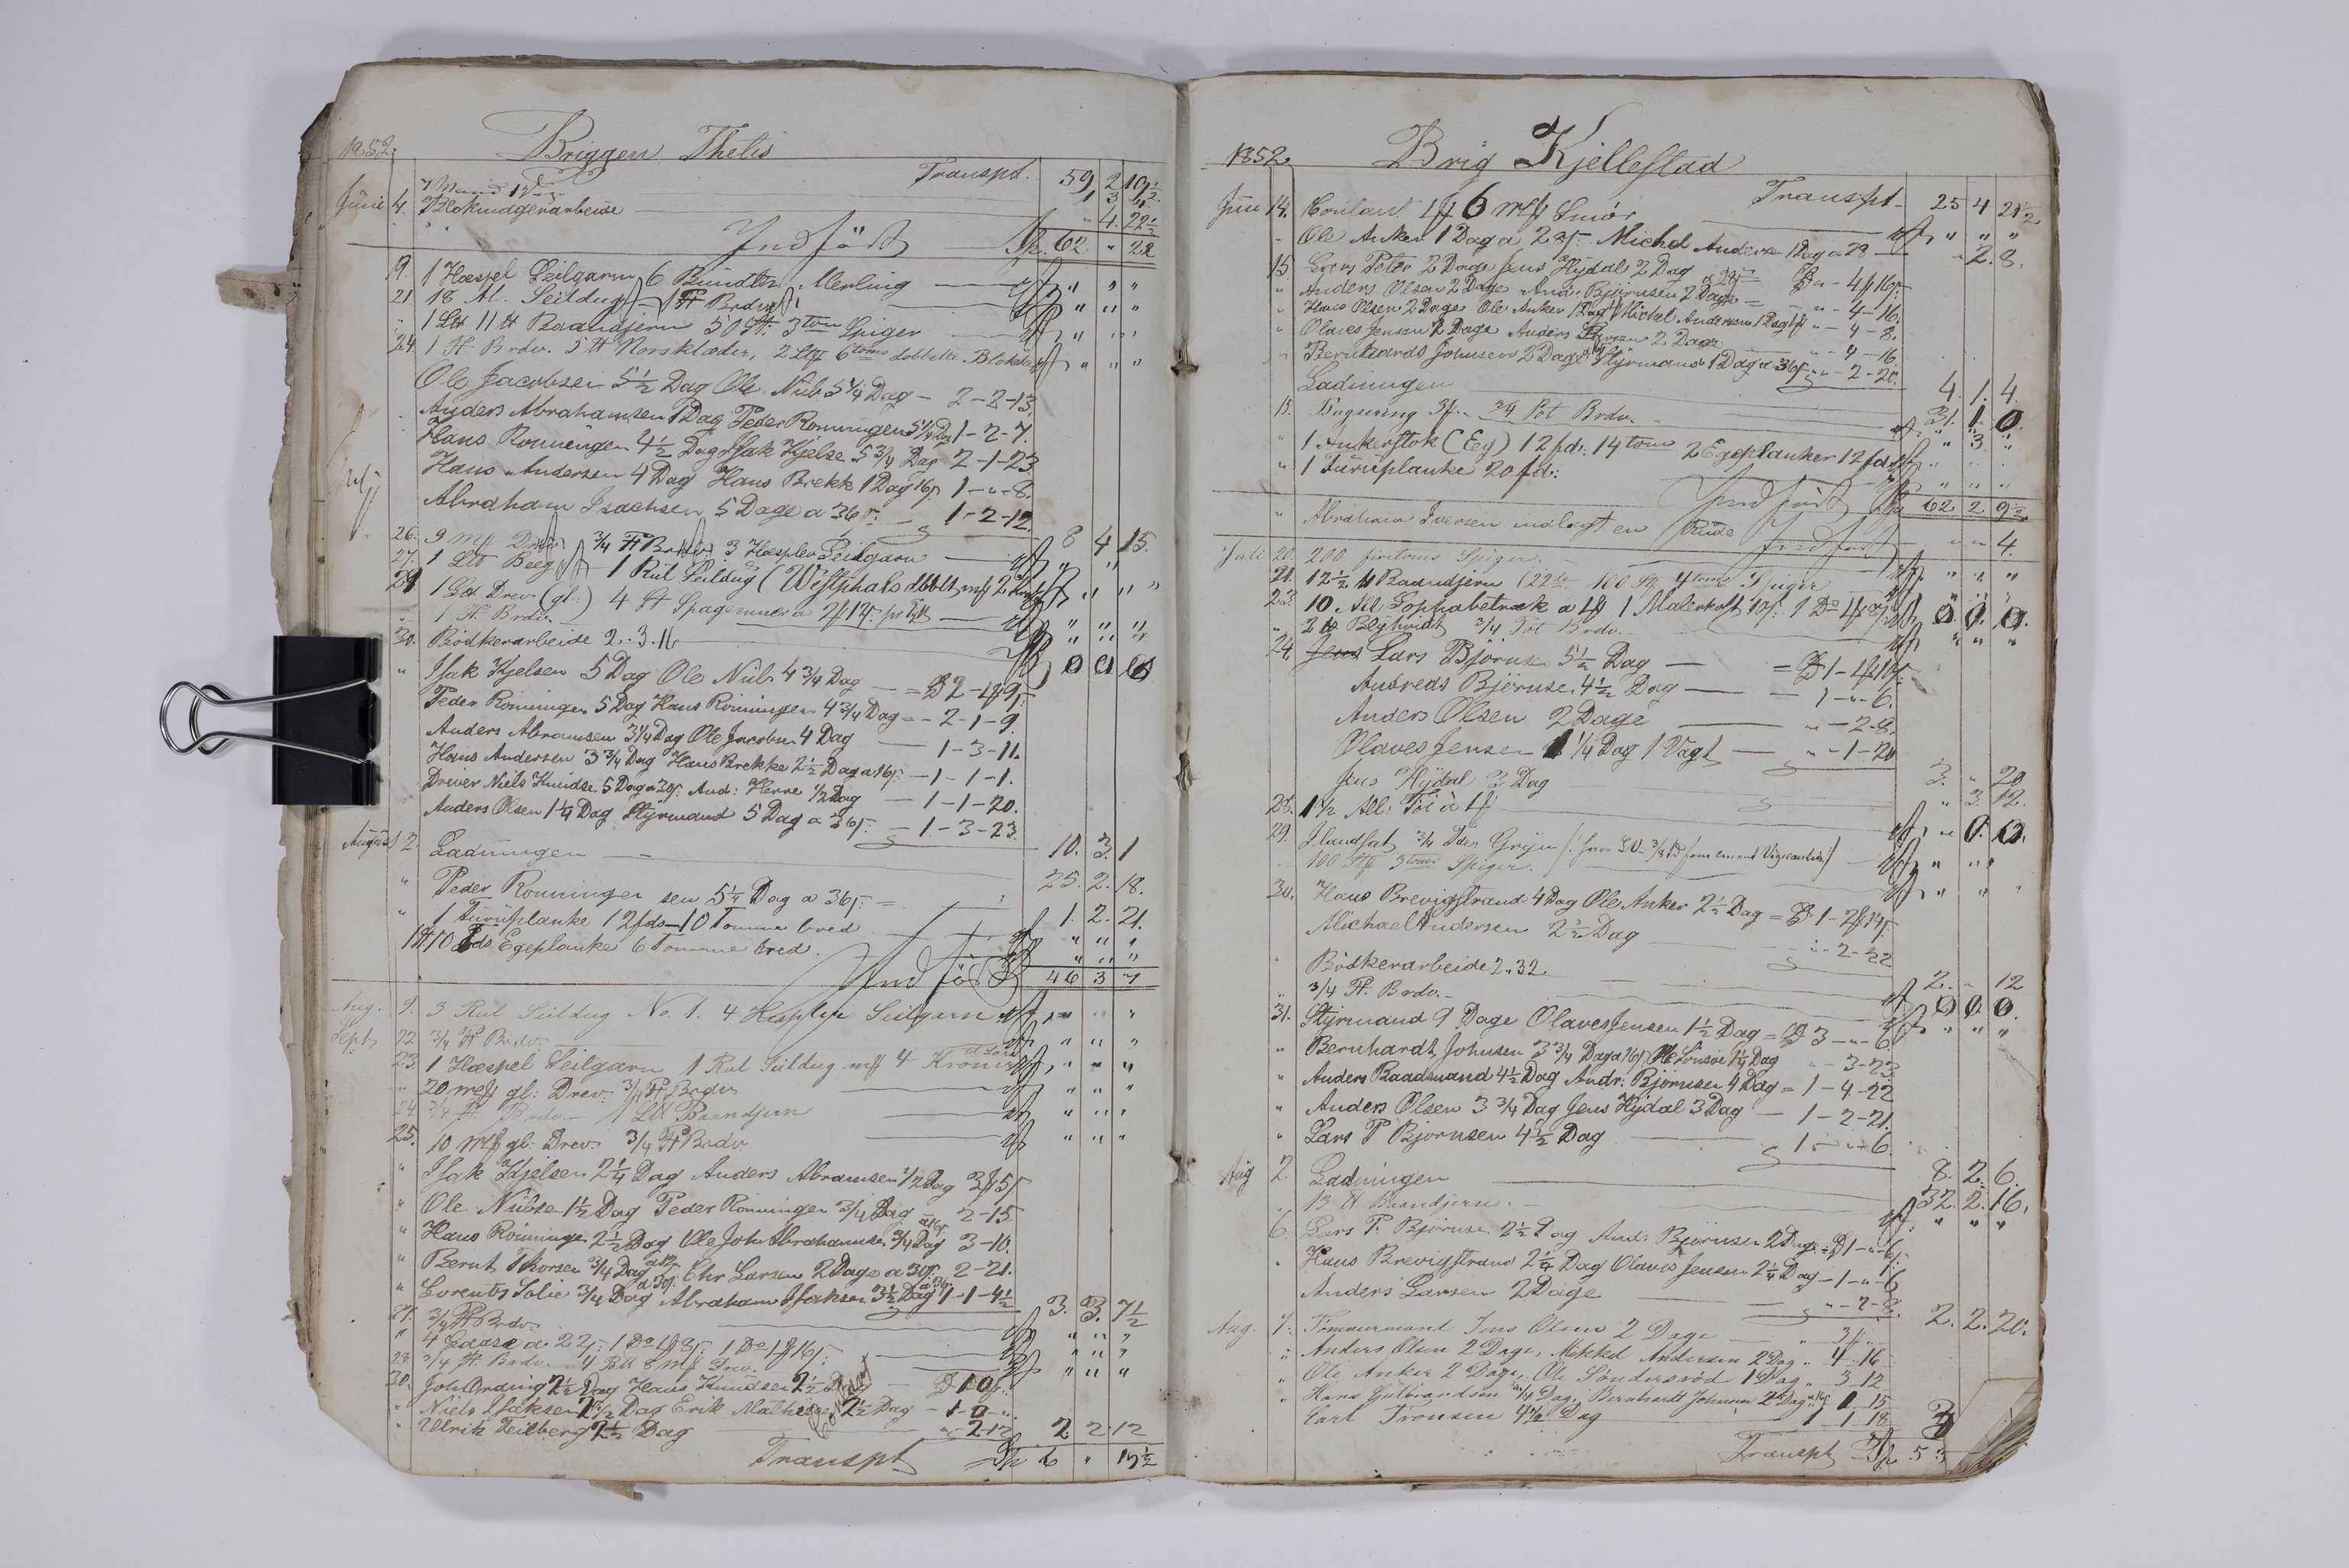 1852.
Briggen Thetis
Transpt. 59 2 10½
7 Mand 1 Dag
Juni 4. Blokmagerarbeide 1 3
" " 4. 22½
Indført Sp. 62 " 22
19. 1 Hæspel Seilgarn 6 Bundter Merling " " "
21. 18 Al. Seildug 1 Pt Brdv. " " "
" 1 L℔ 11 ℔ Baandjern 50 St. 3 tom Spiger " " "
24. 1 Pt. Brdv. 5 ℔ Norsklæder, 2 6 toms dobbelte Blokke " " "
Ole Jacobsen 5½ Dag Ole Nub 5¼ Dag – 2-2-13.
Anders Abrahamsen 1 Dag Peder Ronningen 5¼ Dag 1-2-7.
Hans Ronningen 4½ Dag Isak Kjelse 5¾ Dag 2-1-23
Hans Andersen 4 Dag Hans Brekk 1 Dag 16 1-"-8.
Abraham Isachsen 5 Dage a 36 — 1-2-12.
8 4 15.
26. 9 Drev ¾ Pt Brdv. 3 Hæspler Seilgarn " "
27. 1 L℔ Beeg 1 Rul Seildug (Westphals dobblt 2 " " "
29 1 L℔ Drev (gl:) 4 ℔ Spagermer a 2 12
" 1 Pt. Brdv. " " "
30. Bödkerarbeide 2..3.16 0 0 0
" Isak Kjelsen 5 Dag Ole Nub 4¾ Dag — = 2-1-9
Peder Ronningen 5 Dag Hans Roningen 4¾ Dag – 2-1-9.
Anders Abramsen 3¼ Dag Ole Jacobsen 4 Dag — 1-3-11.
Hans Andersen 3¾ Dag Hans Brekke 2½ Dag a 16 – 1-1-1.
Dreier Niels Knudse 5 Dag a 30 And: Herre ½ Dag — 1-1-20.
Anders Olsen 1¼ Dag Styrmand 5 Dag a 36 – 1-3-23.
10. 3. 1
August 2. Ladningen — 25. 2. 18.
" Peder Ronningen sen 5¼ Dag a 36 = 1. 2. 21.
" 1 Furuplanke 12 fds – 10 Tomme bred " " "
10 fds Egeplanke 6 Tomme bred. " " "
Indfört 46 3 7
Aug. 9. 3 Rul Seildug No. 1. 4 Hæspler Seilgarn " " "
Sept. 22 ¾ Pt Brdv. " " "
23. 1 Hæspel Seilgarn 1 Rul Seildug 4 Kroner " " "
" 20 gl: Drev. ¾ Pt Brdv " " "
24. ¾ Pt. Brdv. – 1 L℔ Baandjern " " "
25. 10 gl: Drev. ¾ Pt Brdv. " " "
" Isak Kjelsen 2¼ Dag Anders Abramsen ½ Dag 2 15
" Ole Nubse 1½ Dag Peder Ronningen ¾ Dag 2-15
" Hans Roninge 2½ Dag Ole Joh: Abrahamse ¾ Dag 3-10.
" Bernt Thorsen ¾ Dag Chr Larsen 2 Dage a 30 2-21.
" Lorents Solie ¾ Dag a 30 Abraham Isaksen 3½ Dag a 36 1-1-4½
3. 3. 7½
27. ¾ Pt Brdv. " " "
" 4 Gaase a 22 1 Do 1 8 1 Do 1 16 " " "
28 ¾ Pt. Brdv. Drev. " " "
30. Joh: 2½ Dag Hans Knudsen 2½ Dag — 1 0
" Niels Isaksen 2½ Dag Erik Mathesen 2½ Dag – 1-0-".
" Ulrik Feilberg 2½ Dag — "-2-12 2 2 12
Contant
Transpt Sp 6 " 19½
1852.
Brig Kjellestad
Transpt – 25 4 21½
Juni 14. Contant 1 6 Smör " " "
" Ole Anker 1 Dag a 28 Michel Anderse 1 Dag a 28 – " 2. 8.
15 Lars Peter 2 Dage Jens Hydal 2 Dag a 28 " – 4 16
" Anders Olsen 2 Dage And: Björnsen 2 Dage – " – 4-16.
" Hans Olsen 2 Dage Ole Anker 1 Dag Michel Andersen 1 Dag " – 4-8.
" Olaves Jensen 2 Dage Anders Larsen 2 Dage " – 4-16
" Bernhards Johnsen 2 Dage Styrmand 1 Dag a 36 – " – 2-20.
4. 1. 4.
Ladningen 31. 1 0.
15. Bugsering 3 – ¾ Pot Brdv. " 3 "
" 1 Ankerstok (Eeg) 12 fd: 14 tom 2 Egeplanker 12 fd
" 1 Furuplanke 20 fd: " " "
Indfört Sp 62 2 9½
" Abraham Iversen indlagt en Rude Indfört " " 4.
Juli 20. 200 firetoms Spiger
21. 12½ ℔ Baandjern (22de 100 4 toms Spiger " " "
23. 10 All Sophabetræk a 1 1 Malerkost 10 1 Do 0. 0. 0.
" 2 ℔ Blyhvidt ¾ Pot Brdv. " " "
24. Jens Lars Björnse 5½ Dag — = 1- 1 10
Andreas Björnse 4½ Dag — – 1-"-6.
Anders Olsen 2 Dage — " – 2-8.
Olaves Jensen 1¼ Dag 1 Vagt — " – 1-20
3. " 20
Jens Hydal 3 Dag " 3. 12.
28. 1½ All: Töi à 1 " 0. 0.
29. Ilandsat ¾ Tde Gryn " " "
100 3 toms Spiger. " " "
30. Hans Brevigstrand 4 Dag Ole Anker 2½ Dag = 1-2 14
Michael Andersen 2½ Dag "-2-22
2. – 12
" Bödkerarbeide 2..32 0 0. 0.
" ¾ Pt. Brdv. – " " "
31. Styrmand 9 Dage Olaves Jensen 1½ Dag = 3-"-6.
" Bernhardt Johnsen 3¾ Dag a 16 Ole 1¼ Dag " 3-23.
" Anders Baadsmand 4½ Dag Andr: Björnsen 4 Dag = 1-4-22
" Anders Olsen 3¾ Dag Jens Hydal 3 Dag — 1-2-21.
" Lars P Bjornsen 4½ Dag — 1-"-6.
8. 2. 6.
Aug 2. Ladningen 32. 2. 16.
" 13 ℔ Baandjern. – " " "
6. Lars P. Björnse 2½ Dag And: Björnsen 2 Dage = 1-"-6
" Hans Brevigstrand 2¼ Dag Olaves Jensen 2¼ Dag – 1-"-6
Anders Larsen 2 Dage — "-2-8.
2. 2. 20.
Aug. 7. Tömmermand Jens Olsen 2 Dage — " 3
" Anders Olsen 2 Dage, Mikkel Andersen 2 Dag " 4-16
" Ole Anker 2 Dage, Ole Söndersröd 1 Dag " 3-12
" Hans Gulbrandsen Dag, Bernhardt Johnsen 2 Dag 1 15
" Carl Tronsen 4½ Dag 1 1 18
Transpt Sp 5